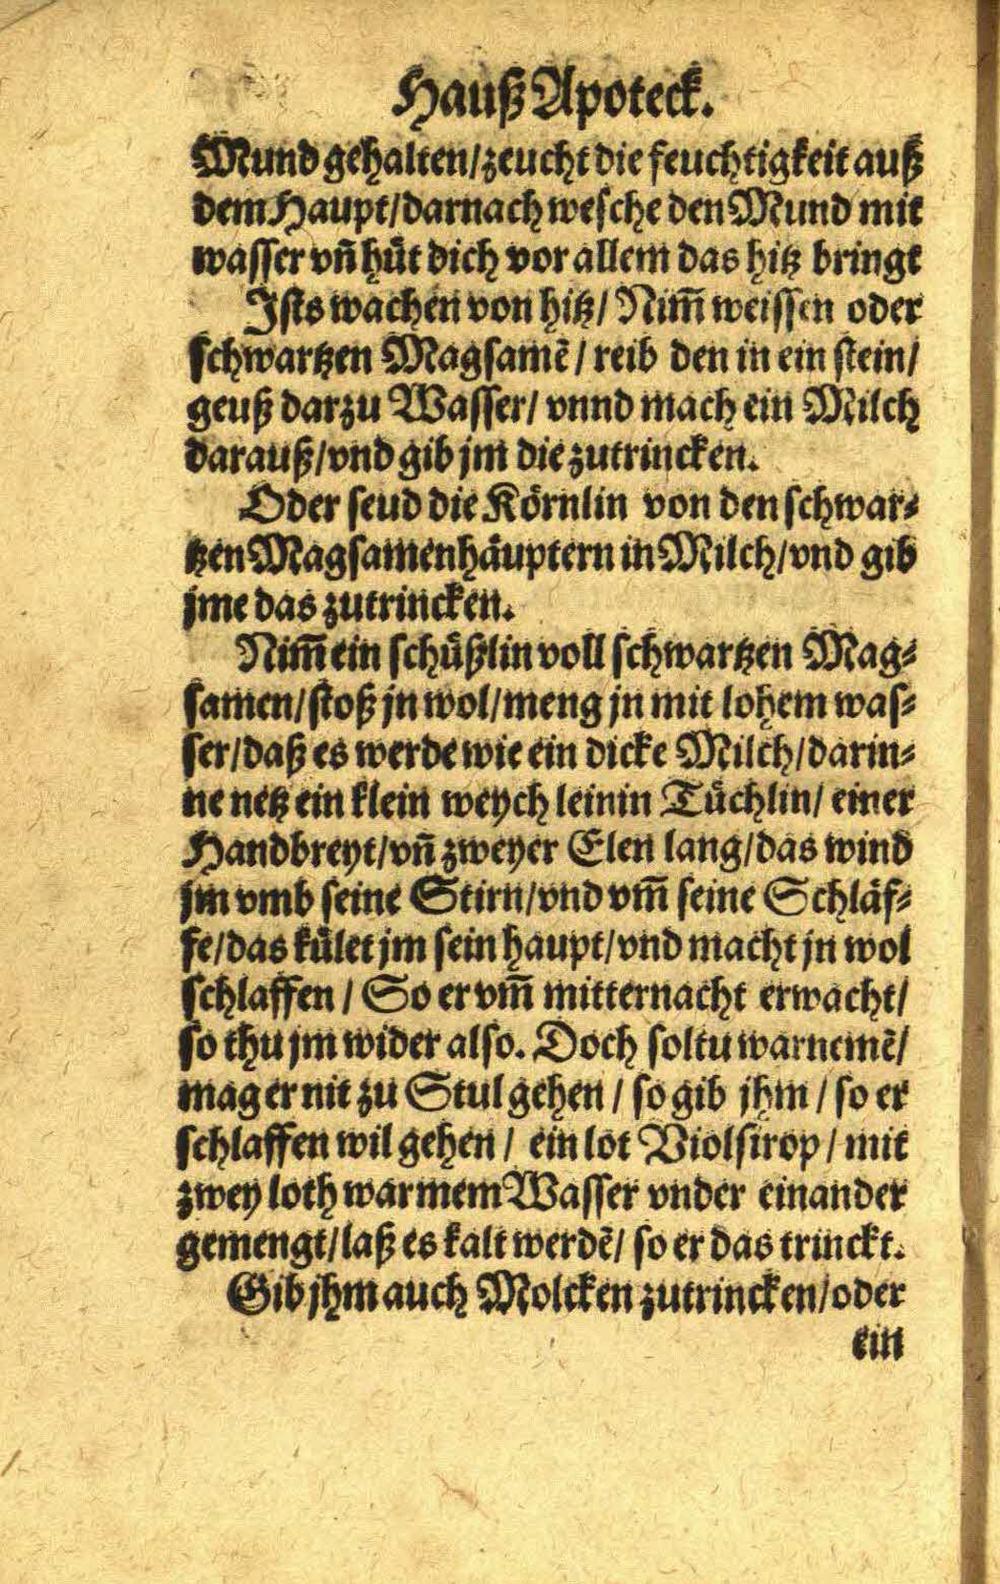 Hauß Apoteck.
Mund gehalten/zeucht die feuchtigkeit auß
dem Haupt/darnach wesche den Mund mit
wasser vn̄ hüt dich vor allem das hitz bringt
Ists wachen von hitz/ Nim̄ weissen oder
schwartzen Magsamē/ reib den in ein stein/
geuß darzu Wasser/ vnnd mach ein Milch
darauß/vnd gib jm die zutrincken.
Oder seud die Körnlin von den schwar⸗
tzen Magsamenhäuptern in Milch/vnd gib
jme das zutrincken.
Nim̄ ein schüßlin voll schwartzen Mag⸗
samen/stoß jn wol/meng jn mit lohem was⸗
ser/daß es werde wie ein dicke Milch/darin⸗
ne netz ein klein weych leinin Tüchlin/ einer
Handbreyt/vn̄ zweyer Elen lang/das wind
jm vmb seine Stirn/vnd vm̄ seine Schläf⸗
fe/das kület jm sein haupt/vnd macht jn wol
schlaffen/ So er vm̄ mitternacht erwacht/
so thu jm wider also. Doch soltu warnemē/
mag er nit zu Stul gehen/ so gib jhm/ so er
schlaffen wil gehen/ ein lot Violsirop/ mit
zwey loth warmem Wasser vnder einander
gemengt/laß es kalt werdē/ so er das trinckt.
Gib jhm auch Molcken zutrincken/oder
ein